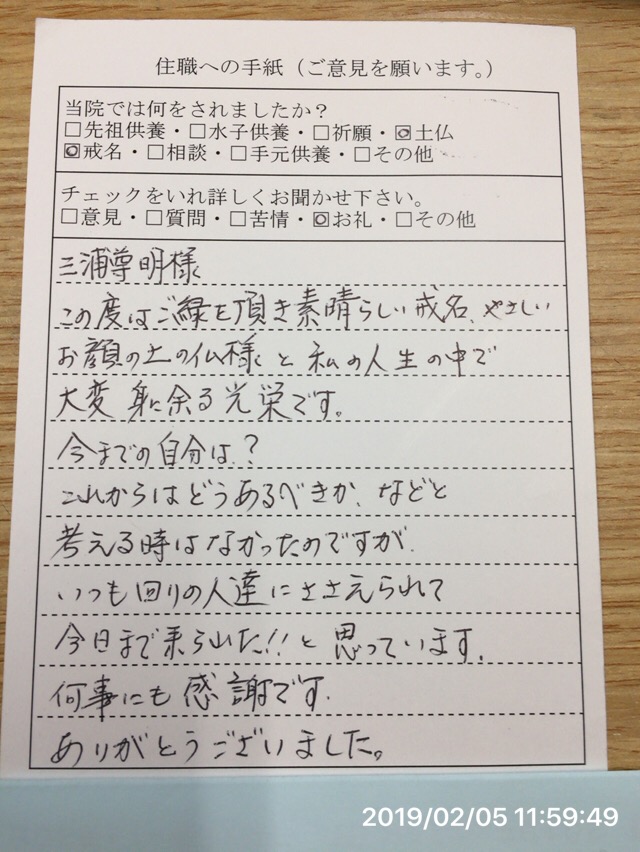 住職への手紙（ご意見を願います。）
当院では何をされましたか？
□先祖供養・□水子供養・□祈願・☑土仏
☑戒名・□相談・□手元供養・□その他
チェックをいれ詳しくお聞かせ下さい。
□意見・□質問・□苦情・☑お礼・□その他
三浦尊明様
この度はご縁を頂き素晴らしい戒名、やさしい
お顔の土の仏様と私の人生の中で
大変身に余る光栄です。
今までの自分は？
これからはどうあるべきか、などと
考える時はなかったのですが、
いつも回りの人達にささえられて
今日まで来られた!!と思っています。
何事にも感謝です。
ありがとうございました。
2019/02/05 11:59:49